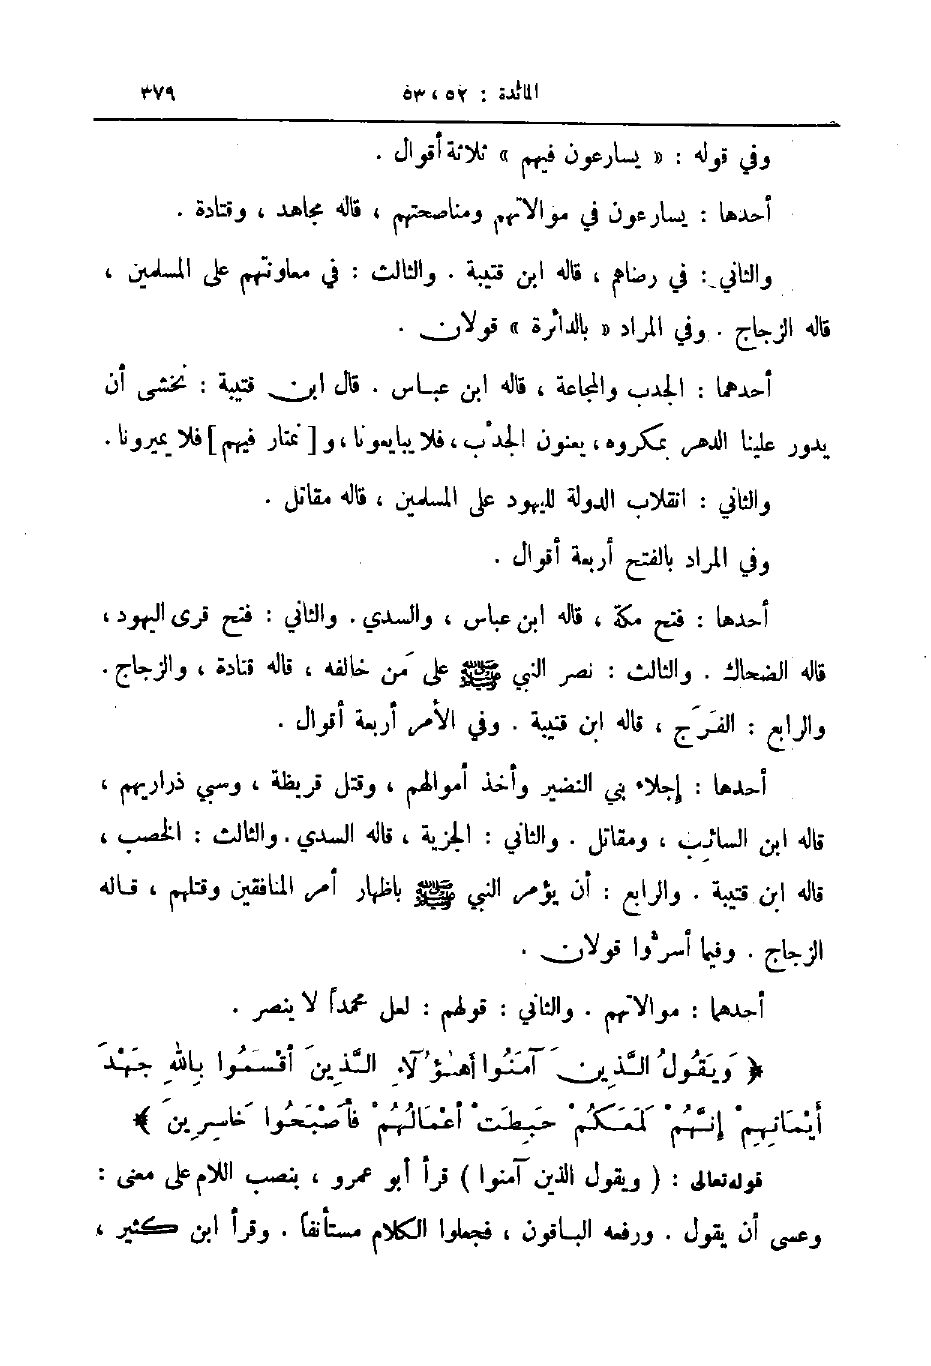 المائدة : ٥٢ ، ٥٣ ٣٧٩
وفي قوله : « يسارعون فيهم » ثلاثة أقوال .
أحدها : يسارعون في موالاتهم ومناصحتهم ، قاله مجاهد ، وقتادة .
والثاني : في رضاهم ، قاله ابن قتيبة . والثالث : في معاونتهم على المسلمين ،
قاله الزجاج . وفي المراد « بالدائرة » قولان .
أحدهما : الجدب والمجاعة ، قاله ابن عباس . قال ابن قتيبة : نخشى أن
يدور علينا الدهر بمكروه ، يعنون الجدْب ، فلا يبايعونا ، و [ نمتار فيهم ] فلا يميرونا .
والثاني : انقلاب الدولة لليهود على المسلمين ، قاله مقاتل .
وفي المراد بالفتح أربعة أقوال .
أحدها : فتح مكة ، قاله ابن عباس ، والسدي . والثاني : فتح قرى اليهود ،
قاله الضحاك . والثالث : نصر النبي ﷺ على مَن خالفه ، قاله قتادة ، والزجاج .
والرابع : الفَرَج ، قاله ابن قتيبة . وفي الأمر أربعة أقوال .
أحدها : إجلاء بني النضير وأخذ أموالهم ، وقتل قريظة ، وسبي ذراريهم ،
قاله ابن السائب ، ومقاتل . والثاني : الجزية ، قاله السدي . والثالث : الخصب ،
قاله ابن قتيبة . والرابع : أن يؤمر النبي ﷺ باظهار أمر المنافقين وقتلهم ، قاله
الزجاج . وفيما أسرُّوا قولان .
أحدهما : موالاتهم . والثاني : قولهم : لعل محمداً لا ينصر .
﴿ وَيَقُولُ الَّذِينَ آمَنُوا أَهٰؤُلَاءِ الَّذِينَ أَقْسَمُوا بِاللهِ جَهْدَ
أَيْمَانِهِمْ إِنَّهُمْ لَمَعَكُمْ حَبِطَتْ أَعْمَالُهُمْ فَأَصْبَحُوا خَاسِرِينَ ﴾
قوله تعالى : ( ويقول الذين آمنوا ) قرأ أبو عمرو ، بنصب اللام على معنى :
وعسى أن يقول . ورفعه الباقون ، فجعلوا الكلام مستأنفاً . وقرأ ابن كثير ،